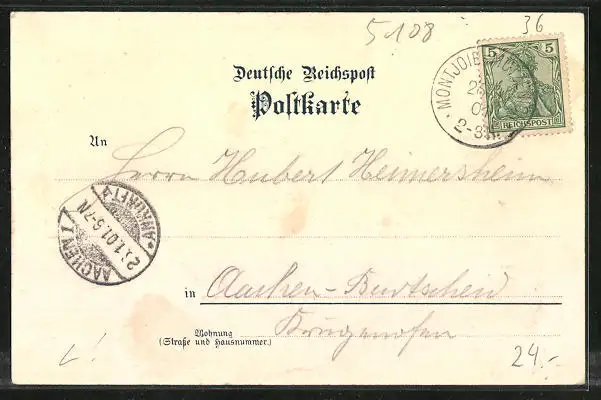 5108
36
Deutsche Reichspost
Postkarte
5 5
REICHSPOST
MONTJOIE
2-3
An
Herrn Hubert Heimersheim
AACHEN 1
1.01.6-7N
ANKUNFT
in Aachen-Burtscheid
Krugenofen
Wohnung
(Straße und Hausnummer)
24.-